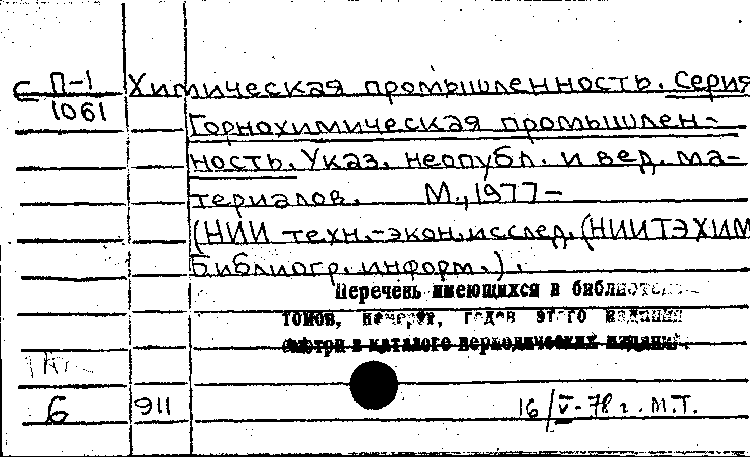 С П-1 Химическая промышленность. Серия
1061 Горнохимическая промышлен-
ность. Указ. неопубл. и вед. ма-
териалов. М., 1977-
(НИИ техн.-экон. исслед. (НИИТЭХИМ
Библиогр. информ.).
Перечень имеющихся в библиотеке
томов, номеров, годов этого издания
смотри в каталоге периодических изданий.
6 911 16/V-78 г. М.Т.